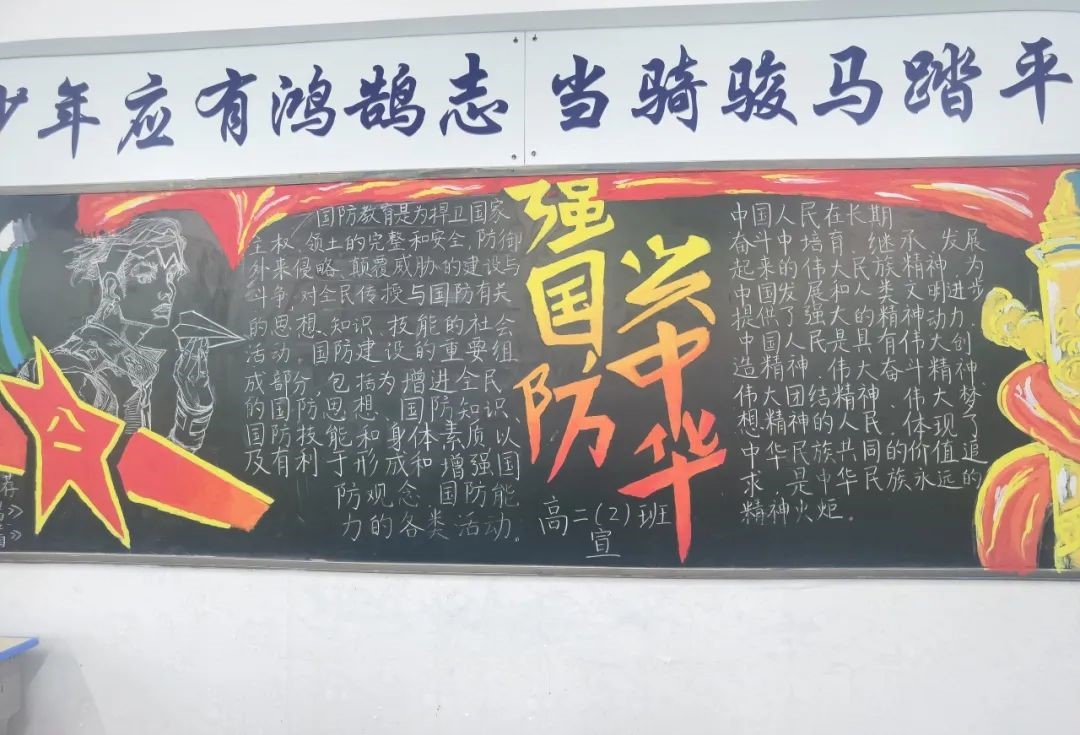 少年应有鸿鹄志 当骑骏马踏平
国防教育是为捍卫国家
主权、领土的完整和安全,防御
外来侵略、颠覆威胁的建设与
斗争,对全民传授与国防有关
的思想、知识、技能的社会
活动,国防建设的重要组
成部分,包括为增进全民
的国防思想、国防知识、
国防技能和身体素质,以
及有利于形成和增强国
防观念、国防能
力的各类活动。
八一
荐
强国防
兴中华
高二(2)班
宣
中国人民在长期
奋斗中培育、继承、发展
起来的伟大民族精神,为
中国发展和人类文明进步
提供了强大的精神动力,
中国人民是具有伟大创
造精神、伟大奋斗精神、
伟大团结精神、伟大梦
想精神的人民,体现了
中华民族共同的价值追
求,是中华民族永远的
精神火炬。